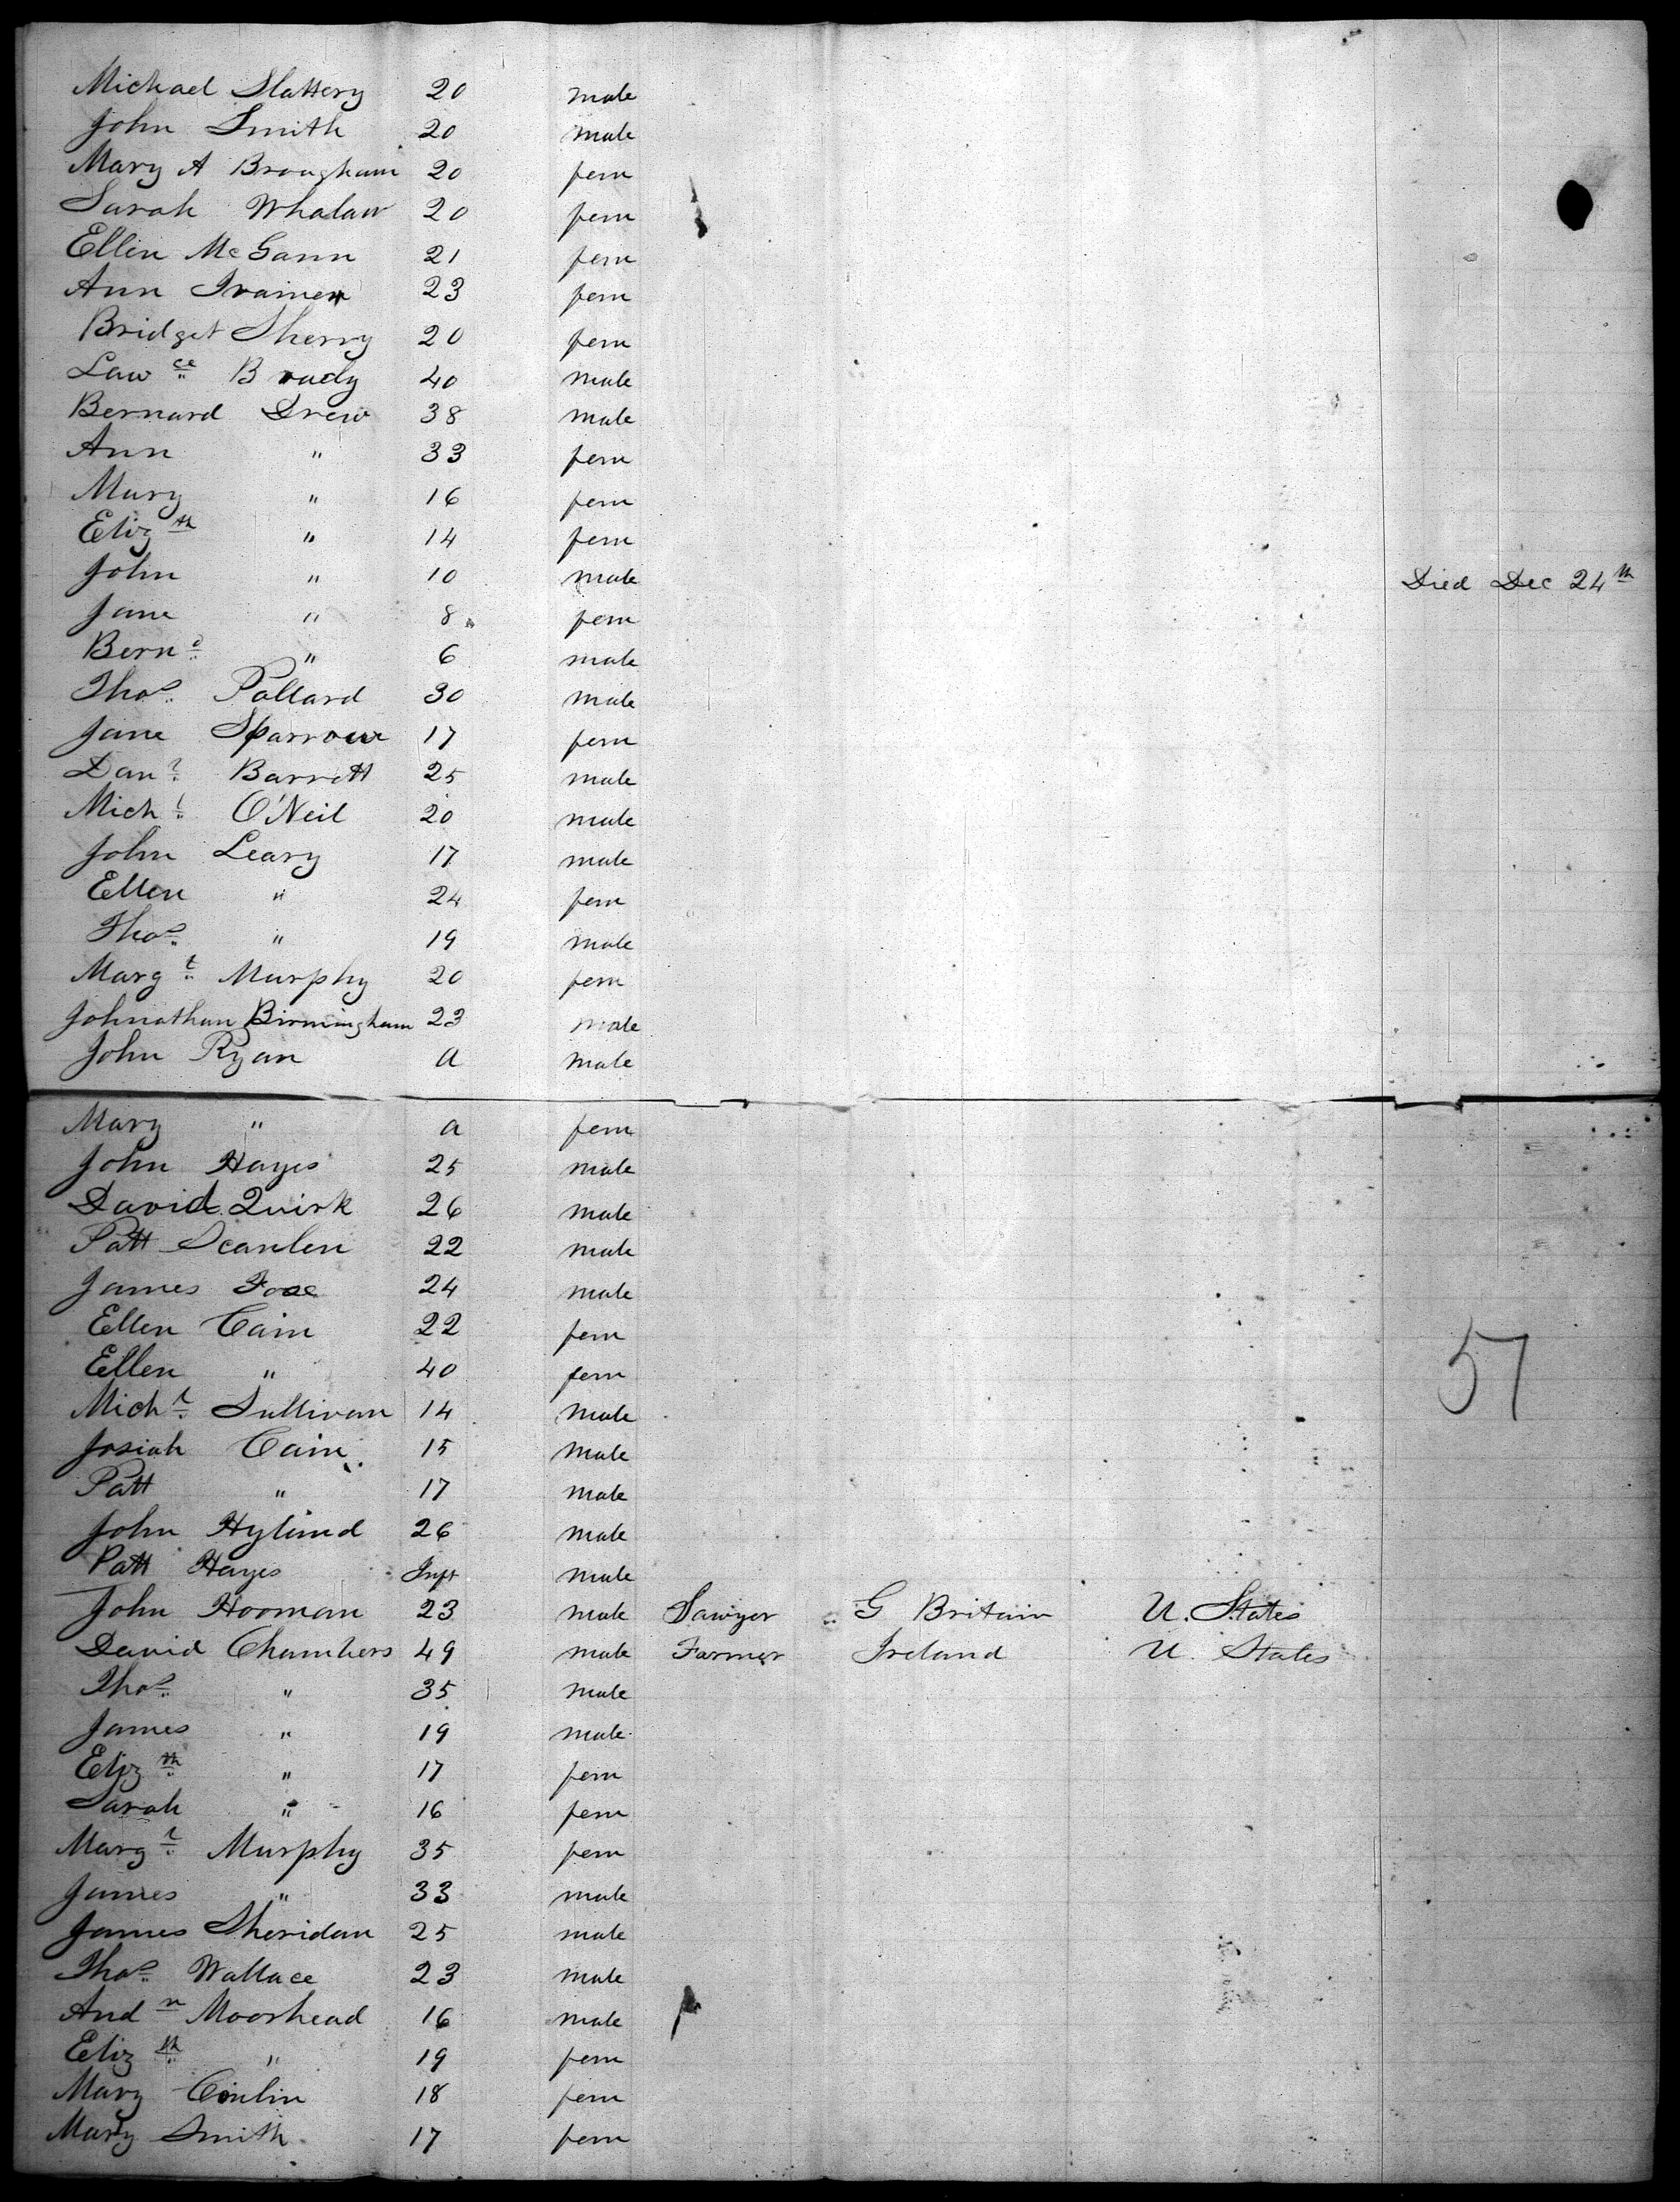 Michael Slattery 20 male
John Smith 20 male
Mary A Brougham 20 fem
Sarah Whalan 20 fem
Ellen McGann 21 fem
Ann 23 fem
Bridget Sherry 20 fem
Lawce Brady 40 male
Bernard Drew 38 male
Ann " 33 fem
Mary " 16 fem
Elizth " 14 fem
John " 10 male Died Dec 24th
Jane " 8 fem
Bernd " 6 male
Thos Pollard 30 male
Jane Sparrow 17 fem
Danl Barrett 25 male
Michl O'Neil 20 male
John Leary 17 male
Ellen " 24 fem
Thos " 19 male
Margt Murphy 20 fem
Johnathan Birmingham 23 male
John Ryan a male
Mary " a fem
John Hayes 25 male
David Quirk 26 male
Patt Scanlen 22 male
James Foxe 24 male
Ellen Cain 22 fem
Ellen " 40 fem
57
Michl Sullivan 14 male
Josiah Cain 15 male
Patt " 17 male
John Hylind 26 male
Patt Hayes Inft male
John Hooman 23 male Sawyer G Britain U. States
David Chambers 49 male Farmer Ireland U. States
Thos " 35 male
James " 19 male
Elizth " 17 fem
Sarah " 16 fem
Margt Murphy 35 fem
James " 33 male
James Sheridan 25 male
Thos Wallace 23 male
Andw Moorhead 16 male
Elizth " 19 fem
Mary Conlin 18 fem
Mary Smith 17 fem